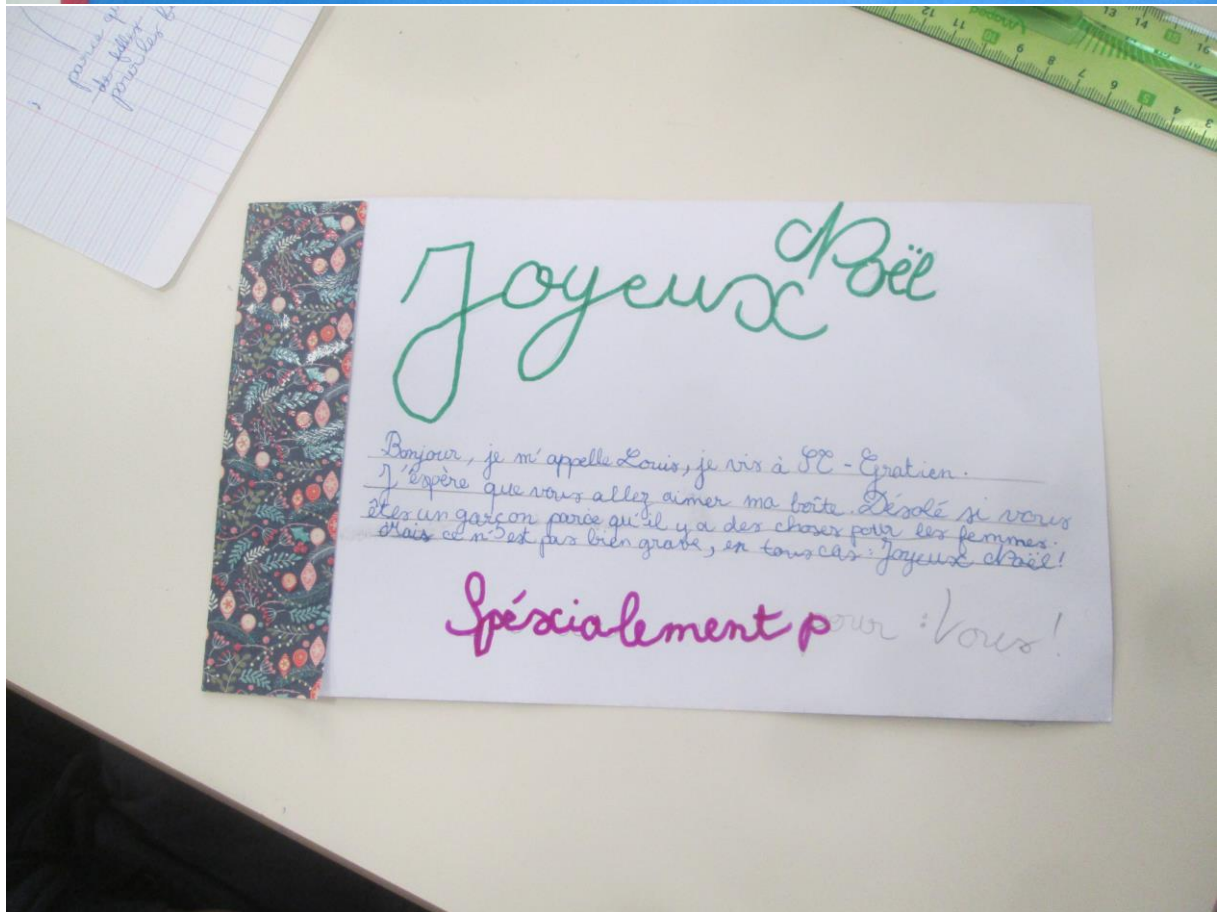 parce
de filles
pour les
Joyeux Noël
Bonjour, je m'appelle Louis, je vis à ST - Gratien.
J'éspère que vous allez aimer ma boîte. Désolé si vous
êtes un garçon parce qu'il y a des choses pour les femmes.
Mais ce n'est pas bien grave, en tous cas : Joyeux Noël!
Spéscialement pour : Vous!